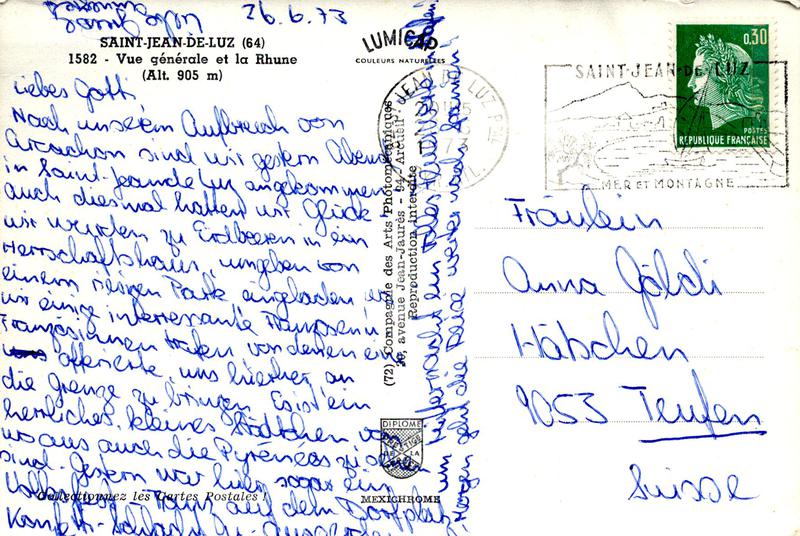 26.6.73
SAINT-JEAN-DE-LUZ (64)
1582 - Vue générale et la Rhune
(Alt. 905 m)
LUMICAP
COULEURS NATURELLES
Liebes Gotti
Nach unserem Aufbruch von
Arcachon sind wir gestern Abend
in Saint-Jean de Luz angekommen
Auch diesmal hatten wir Glück
wir wurden zu Erdbeeren in ein
Herrschaftshaus, umgeben von
einem riesigen Park eingeladen
wir einige interressante Franzosen u.
Französinnen trafen von denen ein
offerierte, uns hierher an
die Grenze zu bringen. Es ist ein
herrliches, kleines Städtchen von
wo aus auch die Pyrenees zu sehen
sind. Gestern war hier sogar ein
Volksfest - Tanz auf dem Dorfplatz,
Konfetti-Schlacht
Morgen geht die Reise weiter nach Spanien
(72) Compagnie des Arts Photomécaniques
, avenue Jean-Jaurès - 94 - Arcueil
Reproduction interdite
DIPLOME
PRESTIGE
DE LA
FRANCE
Collectionnez les Cartes Postales !
MEXICHROME
0,30
POSTES
REPUBLIQUE FRANÇAISE
SAINT-JEAN-DE-LUZ
MER ET MONTAGNE
Fräulein
Anna Göldi
Hätschen
9053 Teufen
Suisse